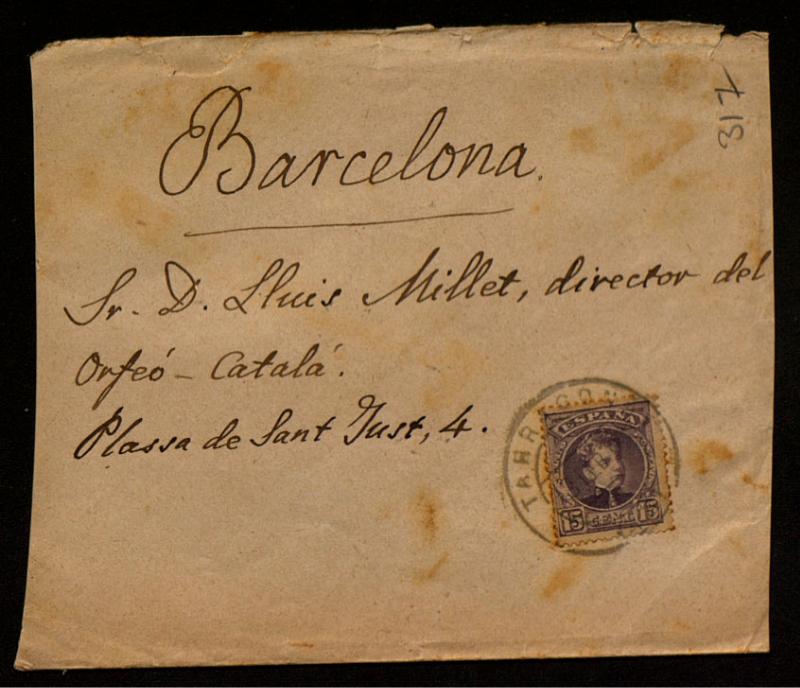 317
Barcelona.
Sr. D. Lluis Millet, director del
Orfeó - Catalá.
Plassa de Sant Just, 4.
TARRAGON
ESPAÑA
15 CENT. 15